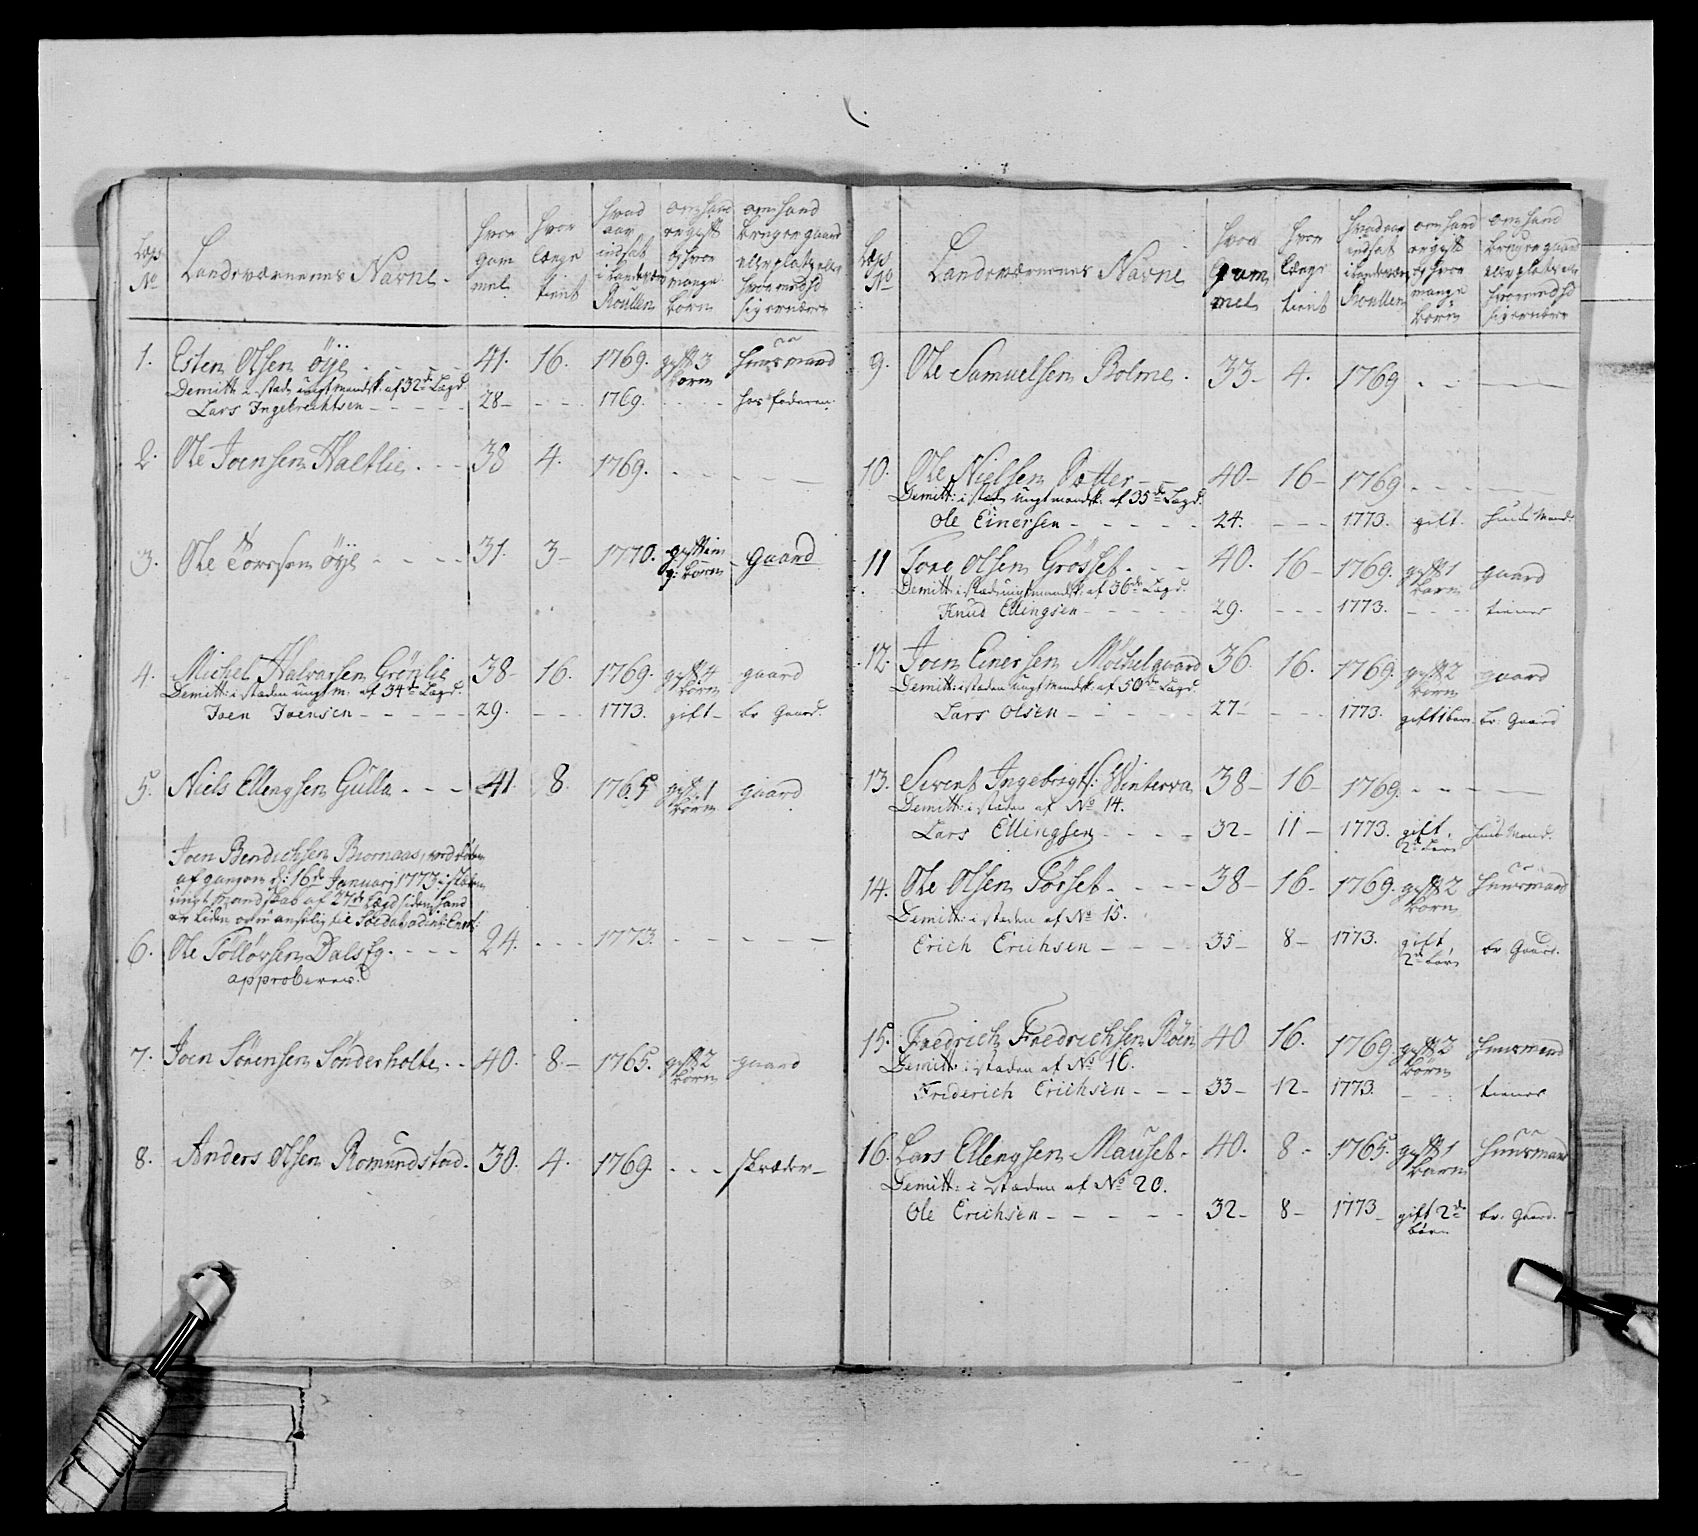 Lægs No
Landsværnernes Navne.
hvor gam mel
hvor længe tient
hvad aar indsat i Landeværn Roullen
om hand er gift og hvor mange børn
om hand bruger gaard eller plads eller hvormed sig ernærer
1. Esten Olsen Öije - - - 41. 16. 1769. gift 3 børn huusmand
Demitt: i stad: ungt mandsk: af 32te Lægd.
Lars Ingebrechtsen - - - - 28 - - - - 1769. - - - - hos faderen.
2. Ole Joensen Haltlie. - - 38 4. 1769. - - - - -
3. Ole Torresen Öije - - - - 31. 3 - 1770. gift in g: børn gaard
4. Michel Halvorsen Grönlie 38 - 16. 1769. gift 4 børn gaard
Demitt: i staden ungt m: af 34te Lægd.
Joen Joensen - - - - - 29. - - - 1773. gift - br Gaard.
5. Niels Ellengsen Gulla - - - 41. 8. 1765 gift 1 børn gaard
Joen Bendichsen Biornaas,
af gangen d: 16de Januarj 1773 i staden
ungt Mandskab af 27de Lægd siden hand
er liden
6. Ole Tollovsen Dalseg - - - - 24. - - - 1773. - - - - -
approberes.
7. Joen Sörensen Sönderholte - - 40. 8. - 1765. gift 2 børn gaard
8. Anders Olsen Romundstad. 30. 4. 1769. - - - skræder -
Lægs No
Landsværnernes Navne
hvor gam mel
hvor længe tient
hvad aar indsat i Landeværn Roullen
om hand er gift og hvor mange børn
om hand bruger gaard eller plads eller hvormed hd sig ernærer
9. Ole Samuelsen Bolme. 33 - 4. 1769 - - -
10. Ole Nielsen Sætter - - 40 - 16 - 1769 - - - -
Demitt: i stad: ungt mandsk. af 35de Lægd.
Ole Einersen - - - - - 24. - - - 1773. gift. huus Mand.
11 Tore Olsen Grösset - - - 40. 16 - 1769. gift 1 børn gaard
Demitt: i stad: ungt mandsk: af 36de Lægd.
Knud Ellingsen - - - - - 29. - - - 1773. - - - - tiener
12. Joen Einersen Möchelgaard 36. 16. 1769. gift 2 børn gaard
Demitt: i staden ungt Mandsk: af 50de Lægd.
Lars Olsen - - - - - 27 - - - - 1773. gift 1 barn. br: Gaard
13. Sivert Ingebrigts: Winterva 38 - 16 - 1769. - - - -
Demitt: i staden af No 14.
Lars Ellingsen - - - - 32 - 11 - 1773. gift. 2de børn huus Mand.
14. Ole Olsen Törset - - - - 38 - 16 - 1769. gift 2 børn huusmand
Demitt: i staden af No 15.
Erich Erichsen - - - - 35 - 8 - 1773. gift, 2de børn br Gaard.
15. Fredrich Fredrichsen Röin 40 16. 1769 gift 3 børn huusmand
Demitt: i staden af No 16.
Friderich Erichsen - - - 33 - 12 - 1773. - - - tiener
16. Lars Ellengsen Mauset - 40. 8 - 1765. gift 1 barn huusmand
Demitt: i staden af No 20.
Ole Erichsen - - - - - 32 - 8 - 1773 - gift 2de børn br. Gaard.